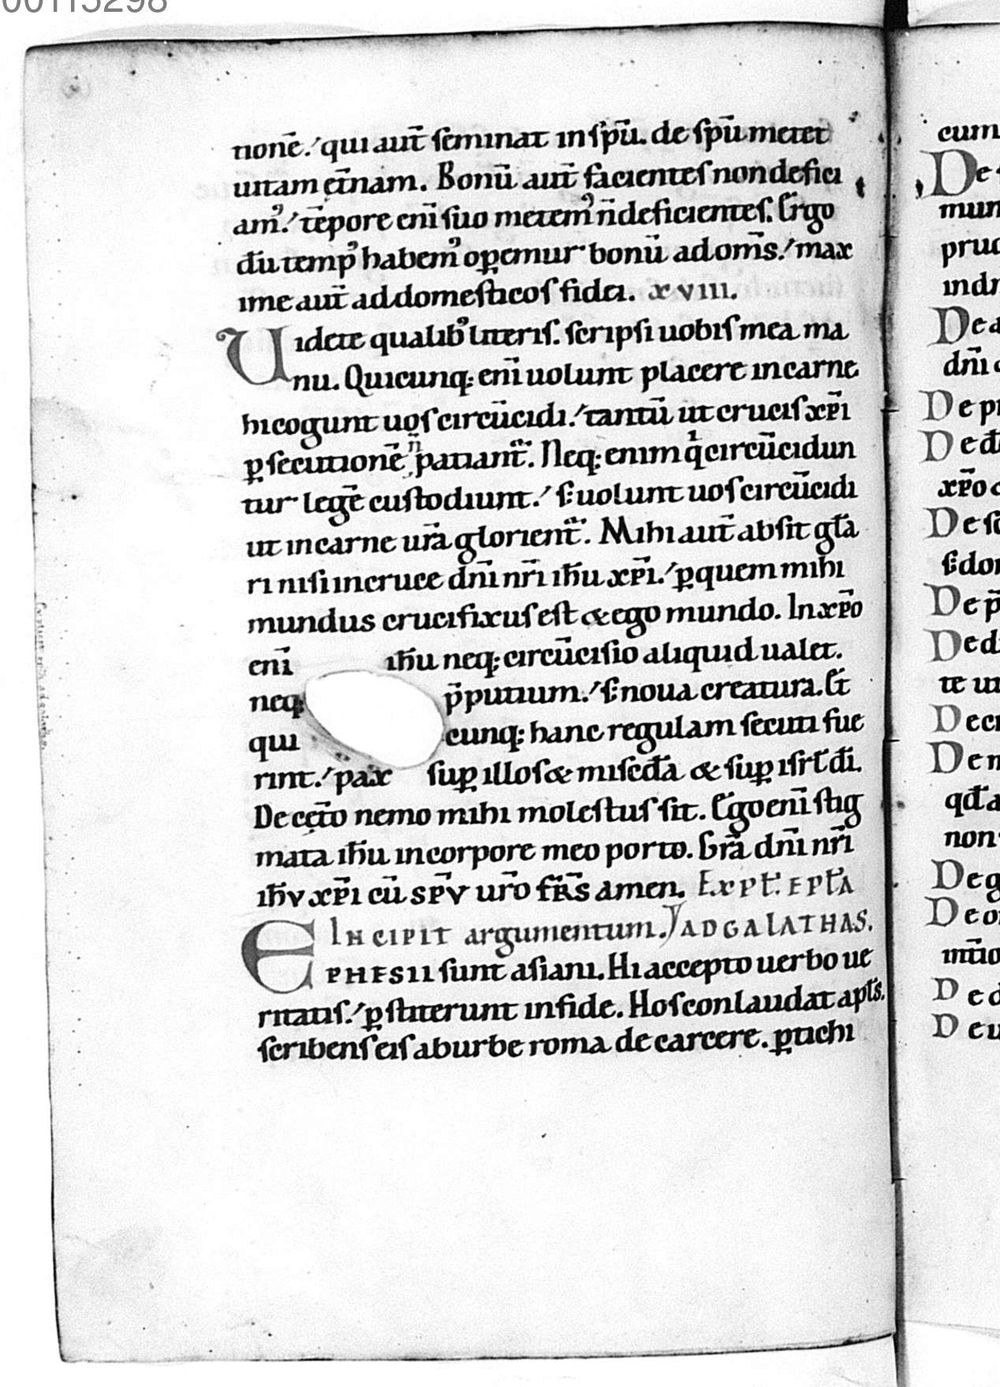 00115298
tionē. qui aut̄ seminat in sp̄u. de sp̄u metet
uitam et̄nam. Bonū aut̄ facientes non defici
am᾿. tēpore enī suo metem᾿ n̄ deficientes. Ergo
dū temp᾿ habem᾿ opemur bonū ad om̄s. max
ime aut̄ ad domesticos fidei. xviii.
Uidete qualib᾿ litteris. scripsi uobis mea ma
nu. Quicunq; enī uolunt placere in carne
hi cogunt uos circūcidi. tantū ut crucis xp̄i
ꝑsecutionē n̄ patiant᾿. Neq; enim qͥ circūcidun
tur legē custodiunt. s; uolunt uos circūcidi
ut in carne ur̄a glorient᾿. Mihi aut̄ absit gl̄a
ri nisi in cruce dn̄i nr̄i ih̄u xp̄i. ꝑ quem mihi
mundus crucifixus est & ego mundo. In xp̄o
enī ih̄u neq; circūcisio aliquid ualet.
neq; p̄putium. s; noua creatura. Et
qui cunq; hanc regulam secuti fue
rint. pax sup illos & misc̄da & sup isrl̄ dī.
De cet̄o nemo mihi molestus sit. Ego enī stig
mata ih̄u in corpore meo porto. Gr̄a dn̄i nr̄i
ih̄v xp̄i cū spv̄ ur̄o fr̄s amen. Expl̄. epl̄a
Incipit argumentum. ad galathas.
Ephesii sunt asiani. Hi accepto uerbo ue
ritatis. ꝑstiterunt in fide. Hos conlaudat apl̄s.
scribens eis ab urbe roma de carcere. ꝑ tichi
cum
De
mun
pruc
indi
De a
dn̄i
De pr
De
xp̄o
De
De
De d
te
De
De
non
De
De
De
De